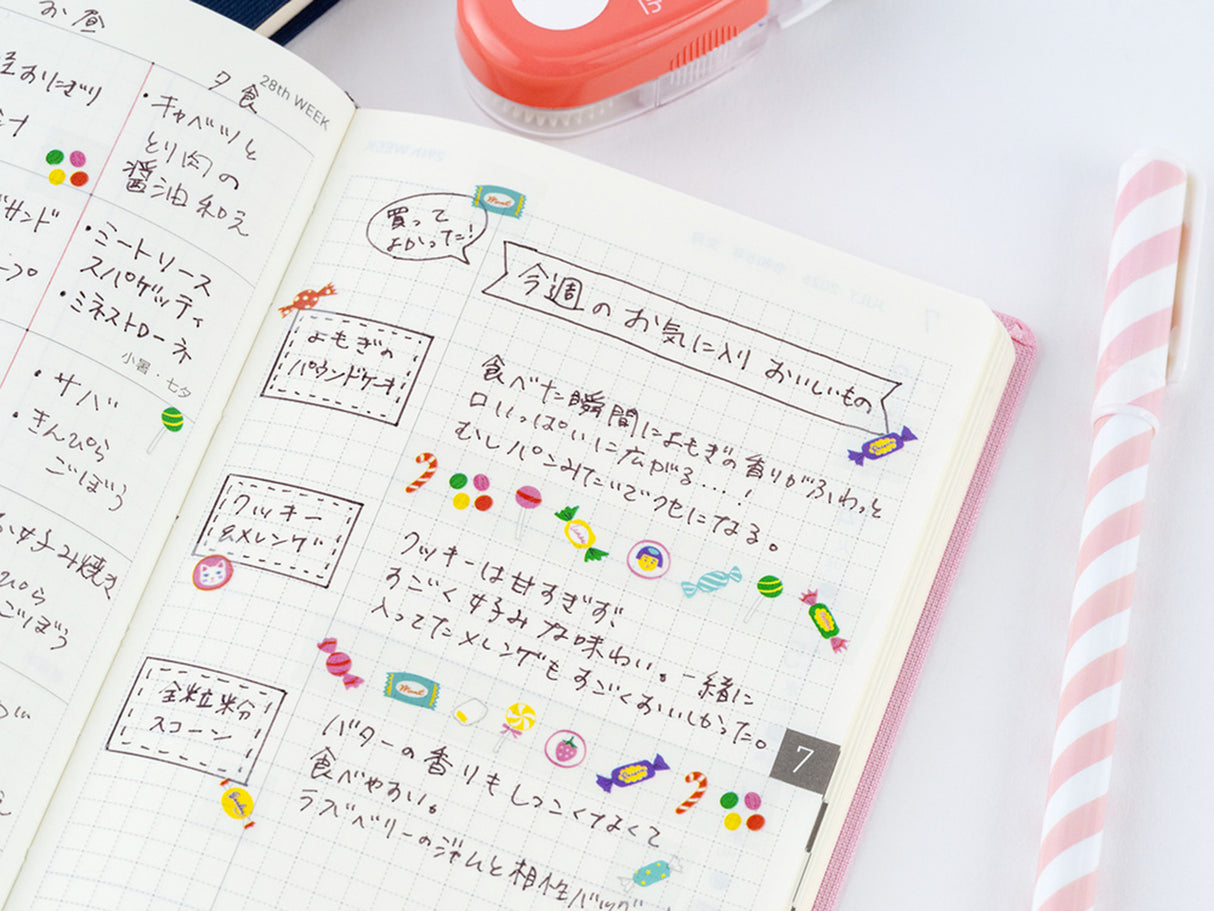 お昼
おにぎり
サンド
夕食
28th WEEK
・キャベツと
とり肉の
醤油和え
・ミートソース
スパゲッティ
・ミネストローネ
小暑・七夕
・サバ
・きんぴら
ごぼう
お好み焼き
ぴら
ごぼう
買って
よかった!
Mint
今週のお気に入り おいしいもの
よもぎの
パウンドケーキ
食べた瞬間によもぎの香りがふわっと
口いっぱいに広がる…!
むしパンみたいでクセになる。
クッキー
&メレンゲ
クッキーは甘すぎず、
すごく好みな味わい。一緒に
入ってたメレンゲもすごくおいしかった。
Mint
7
全粒粉
スコーン
バターの香りもしつこくなくて
食べやすい。
ラズベリーのジャムと相性バッグ